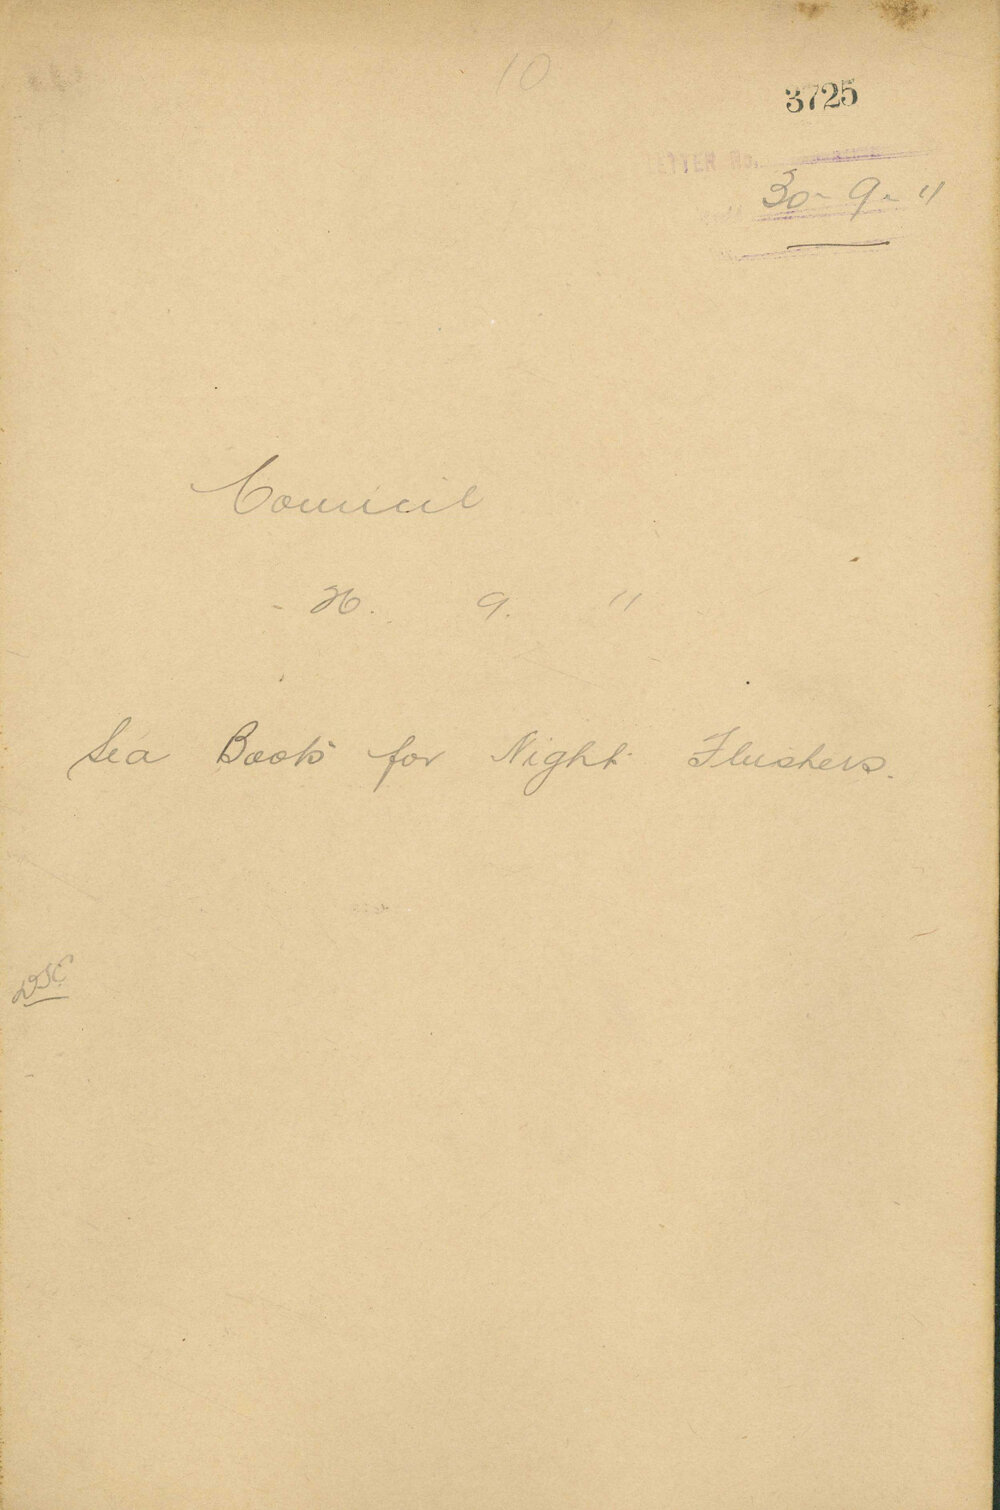 10
3725
LETTER No.
30-9-11
Council
- 26. 9. 11
Sea Boots for Night Flushers.
DSC